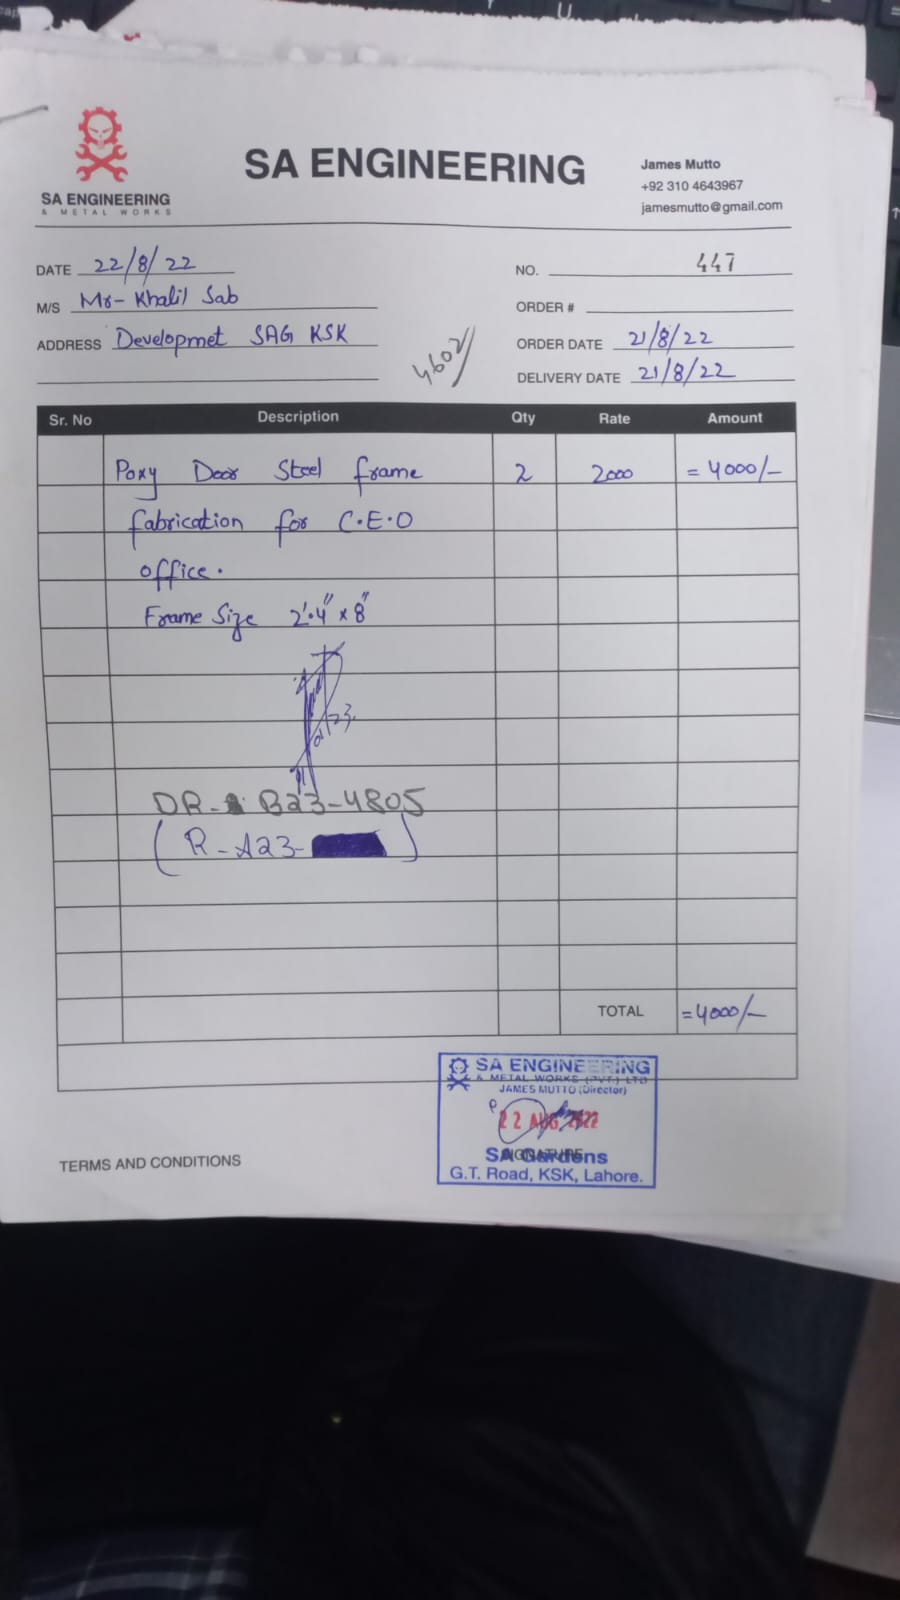 SA ENGINEERING
& METAL WORKS
SA ENGINEERING
James Mutto
+92 310 4643967
jamesmutto@gmail.com
DATE 22/8/22
NO. 447
M/S Mr- Khalil Sab
ORDER #
ADDRESS Developmet SAG KSK
ORDER DATE 21/8/22
4602/
DELIVERY DATE 21/8/22
Sr. No Description Qty Rate Amount
Poxy Door Steel frame 2 2000 = 4000/-
fabrication for C.E.O
office.
Frame Size 2'.4" x 8"
DR- B23-4805
( R-A23- )
TOTAL =4000/-
SA ENGINEERING
& METAL WORKS (PVT.) LTD
JAMES MUTTO (Director)
22 AUG 2022
SIGNATURE
SA Gardens
G.T. Road, KSK, Lahore.
TERMS AND CONDITIONS